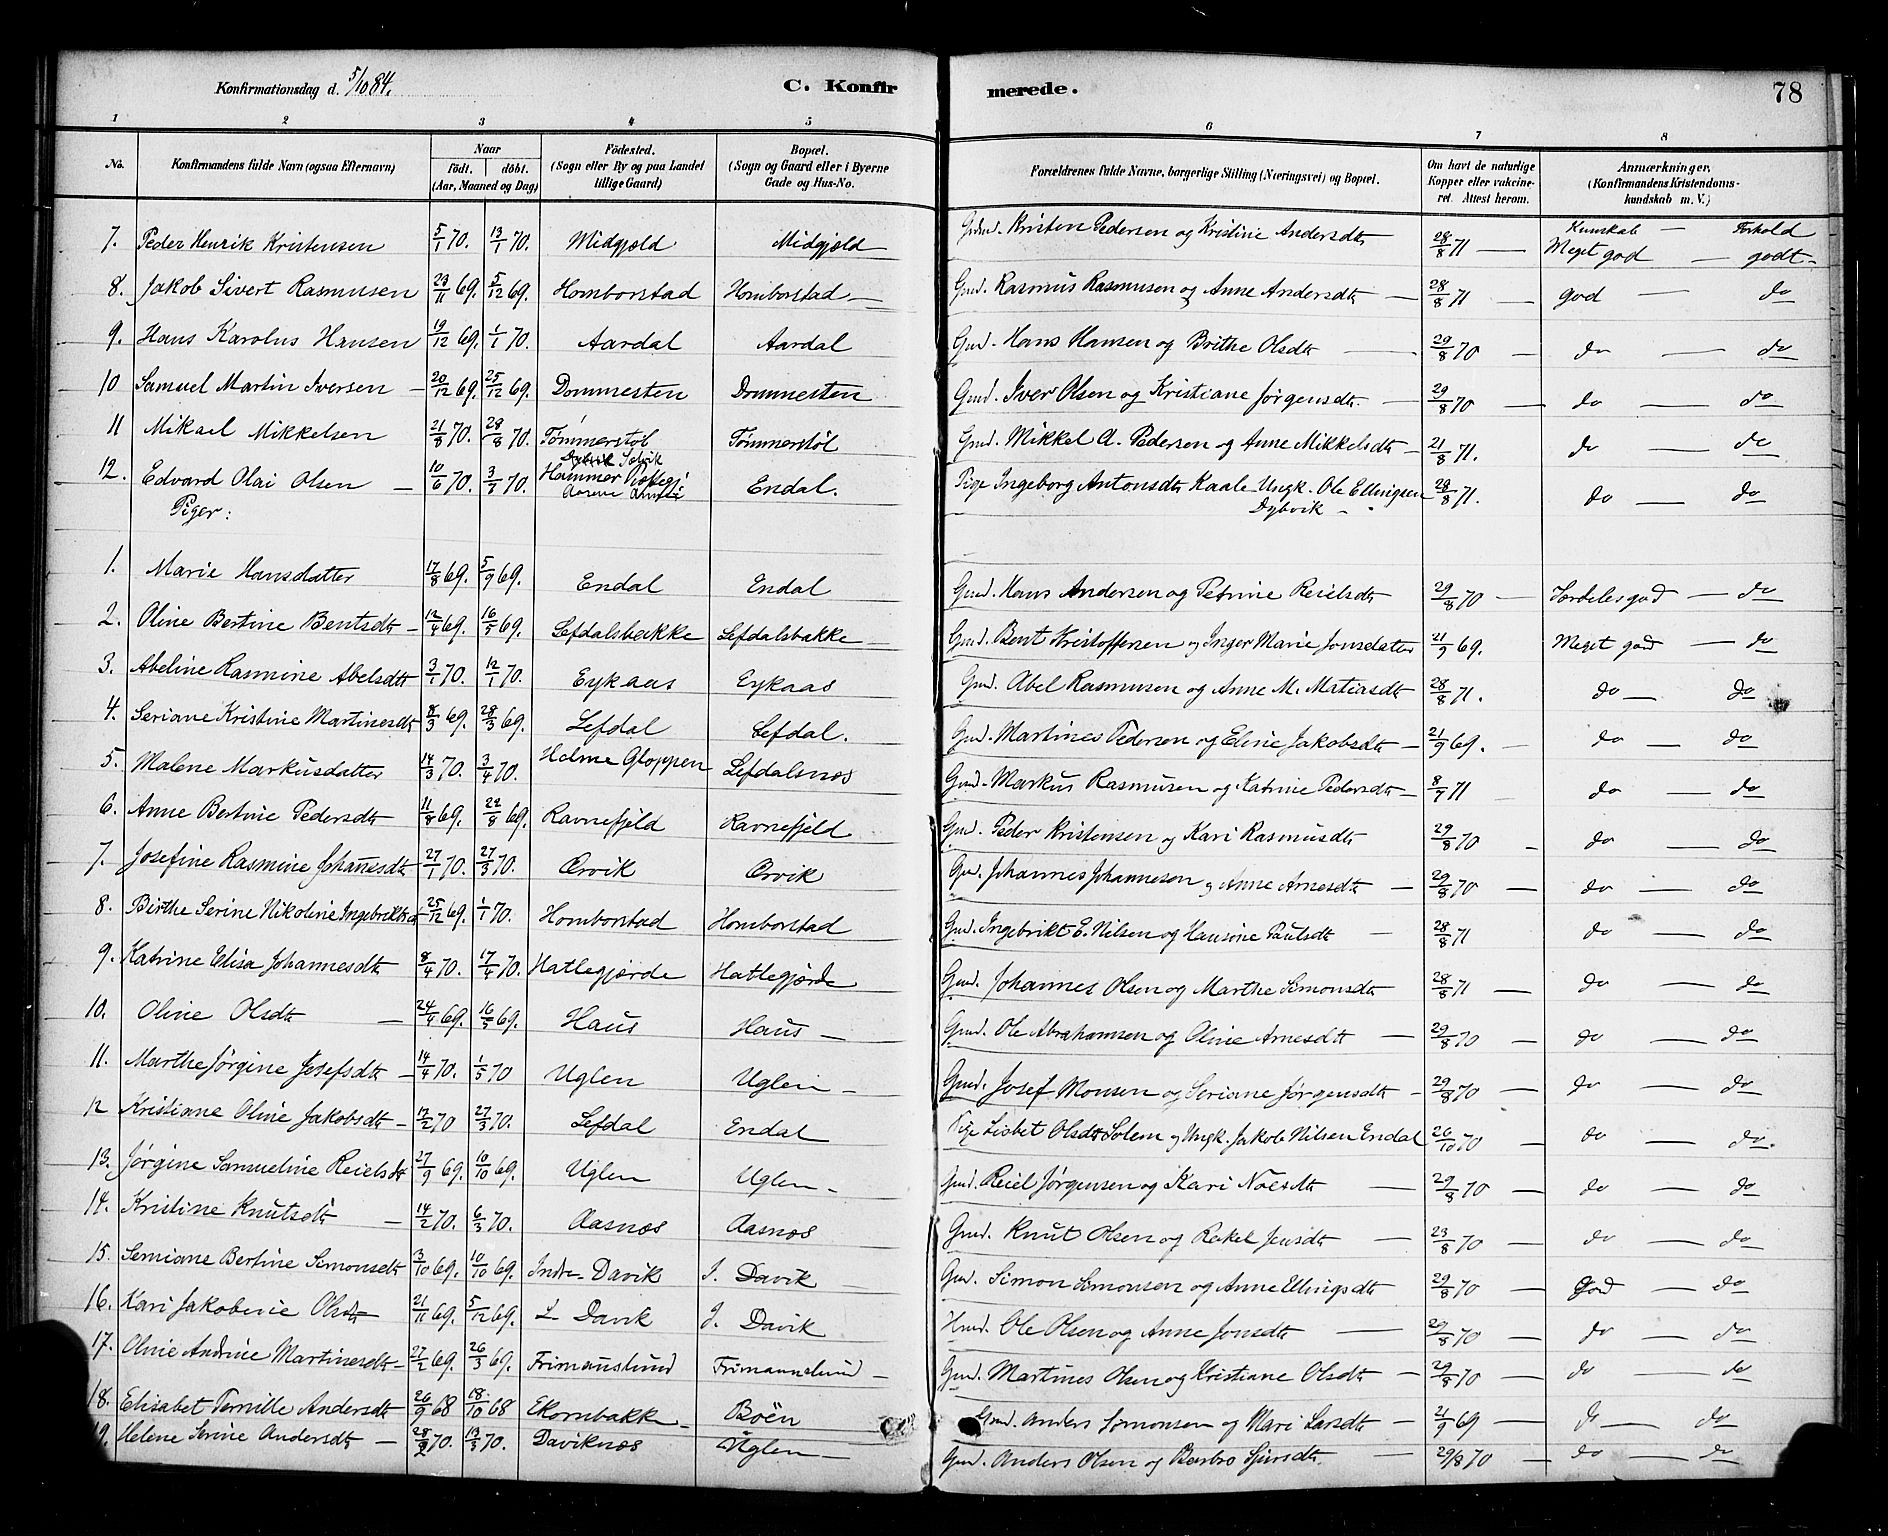 Konfirmationsdag d. 5/10 84.
C. Konfirmerede.
78
1 2 3 4 5 6 7 8
No. Konfirmandens fulde Navn (ogsaa Efternavn) Naar födt. döbt. (Aar, Maaned og Dag) Födested. (Sogn eller By og paa Landet tillige Gaard) Bopæl. (Sogn og Gaard eller i Byerne Gade og Hus-No. Forældrenes fulde Navne, borgerlige Stilling (Næringsvei) og Bopæl. Om havt de naturlige Kopper eller vakcineret. Attest herom. Anmærkninger. (Konfirmandens Kristendomskundskab m. V.)
Kunskab — Forhold
7. Peder Henrik Kristensen 5/1 70. 13/1 70. Midgjæld Midgjæld Gmd. Kristen Pedersen og Kristine Andersdtr 28/8 71 — Meget god — godt
8. Jakob Sivert Rasmusen 23/11 69. 5/12 69. Homborstad Homborstad — Gmd. Rasmus Rasmusen og Anne Andersdtr — 28/8 71 — god — do
9. Hans Karolus Hansen 19/12 69. 1/1 70. Aardal Aardal Gmd. Hans Hansen og Brithe Olsdtr — 29/8 70 — do — do
10 Samuel Martin Iversen — 20/12 69. 25/12 69. Dommesten Dommesten Gmd. Iver Olsen og Kristiane Jørgensdtr. — 29/8 70 — do — do
11 Mikael Mikkelsen 21/8 70. 28/8 70. Tømmerstøl Tømmerstøl Gmd. Mikkel A. Pedersen og Anne Mikkelsdtr — 21/8 71. do — do
12. Edvard Olai Olsen — 10/6 70. 3/7 70. Hammer Endal. Pige Ingeborg Antonsdtr Kaale Ungk. Ole Ellingsen Dybvik 28/8 71. do — do
Piger:
1. Marie Hansdatter 17/8 69. 5/9 69. Endal Endal Gmd. Hans Andersen og Petrine Reielsdtr 29/8 70 — Særdeles god — do
2. Oline Bertine Bentsdtr — 12/4 69. 16/5 69. Lefdalsbakke Lefdalsbakke — Gmd. Bent Kristoffersen og Inger Marie Jonsdatter 21/9 69. Meget god — do
3. Abeline Rasmine Abelsdtr 3/1 70. 12/1 70. Eykaas Eykaas Gmd. Abel Rasmusen og Anne M. Matiasdtr 28/8 71. do — do
4. Seriane Kristine Martinesdtr 8/3 69. 28/3 69. Lefdal Lefdal. Gmd. Martines Pedersen og Eline Jakobsdtr — 21/9 69. — do — do
5. Malene Markusdatter 14/3 70. 3/4 70. Holme Gloppen Lefdalsnæs Gmd. Markus Rasmusen og Katrine Pedersdtr — 8/7 71 do — do
6. Anne Bertine Pedersdtr 11/8 69. 22/8 69. Ravnefjeld Ravnefjeld Gmd. Peder Kristensen og Kari Rasmusdtr 29/8 70 do — do
7. Josefine Rasmine Johanesdtr 27/1 70. 27/3 70. Ørvik Ørvik Gmd. Johannes Johannesen og Anne Arnesdtr — 29/8 70 — do — do
8. Birthe Serine Nikoline Ingebriktsdt 25/12 69. 1/1 70. Homborstad Homborstad Gmd. Ingebrikt E. Nilsen og Hansine Paulsdtr — 28/8 71 do — do
9. Katrine Elisa Johannesdtr 8/4 70. 17/4 70. Hatlegjærde Hatlegjærde Gmd. Johannes Olsen og Marthe Simonsdtr 28/8 71 — do — do
10. Oline Olsdtr — 24/4 69. 16/5 69. Haus Haus — Gmd. Ole Abrahamsen og Oline Arnesdtr — 29/8 70 — do — do
11. Marthe Jørgine Josefsdtr — 14/4 70. 1/5 70 Uglen Uglen — Gmd. Josef Monsen og Seriane Jørgensdtr — 29/8 70 — do — do
12 Kristiane Oline Jakobsdtr — 12/2 70 27/3 70. Lefdal Endal Pige Lisbet Olsdtr Solem og Ungk. Jakob Nilsen Endal 26/10 70 do — do.
13. Jørgine Samueline Reielsdtr 27/9 69. 10/10 69. Uglen Uglen — Gmd. Reiel Jørgensen og Kari Noesdtr — 29/8 70 — do — do
14. Kristine Knutsdtr — 14/2 70. 6/3 70. Aasnæs Aasnæs Gmd. Knut Olsen og Rakel Jensdtr — 23/8 70 — do — do
15. Semiane Bertine Simonsdtr 3/10 69. 10/10 69. Indre Davik I. Davik — Gmd. Simon Simonsen og Anne Ellingsdtr 29/8 70 — God — do
16. Kari Jakobine Olsdtr 21/11 69. 5/12 69. I. Davik I. Davik Hmd. Ole Olsen og Anne Jonsdtr — 29/8 70 — do — do
17. Oline Andrine Martinesdtr — 27/2 69. 26/3 69. Frimanslund Frimannslund — Gmd. Martines Olsen og Kristiane Olsdtr — 29/8 70 — do — do
18. Elisabet Pernille Andersdtr 26/9 68 18/10 68 Ekornbakke Böen Gmd. Anders Simonsen og Mari Larsdtr — 21/9 69 — do — do
19. Helene Serine Andersdtr — 28/2 70. 13/3 70. Daviknæs Uglen — Gmd. Anders Olsen og Barbro Sjursdtr. — 29/8 70 — do — do